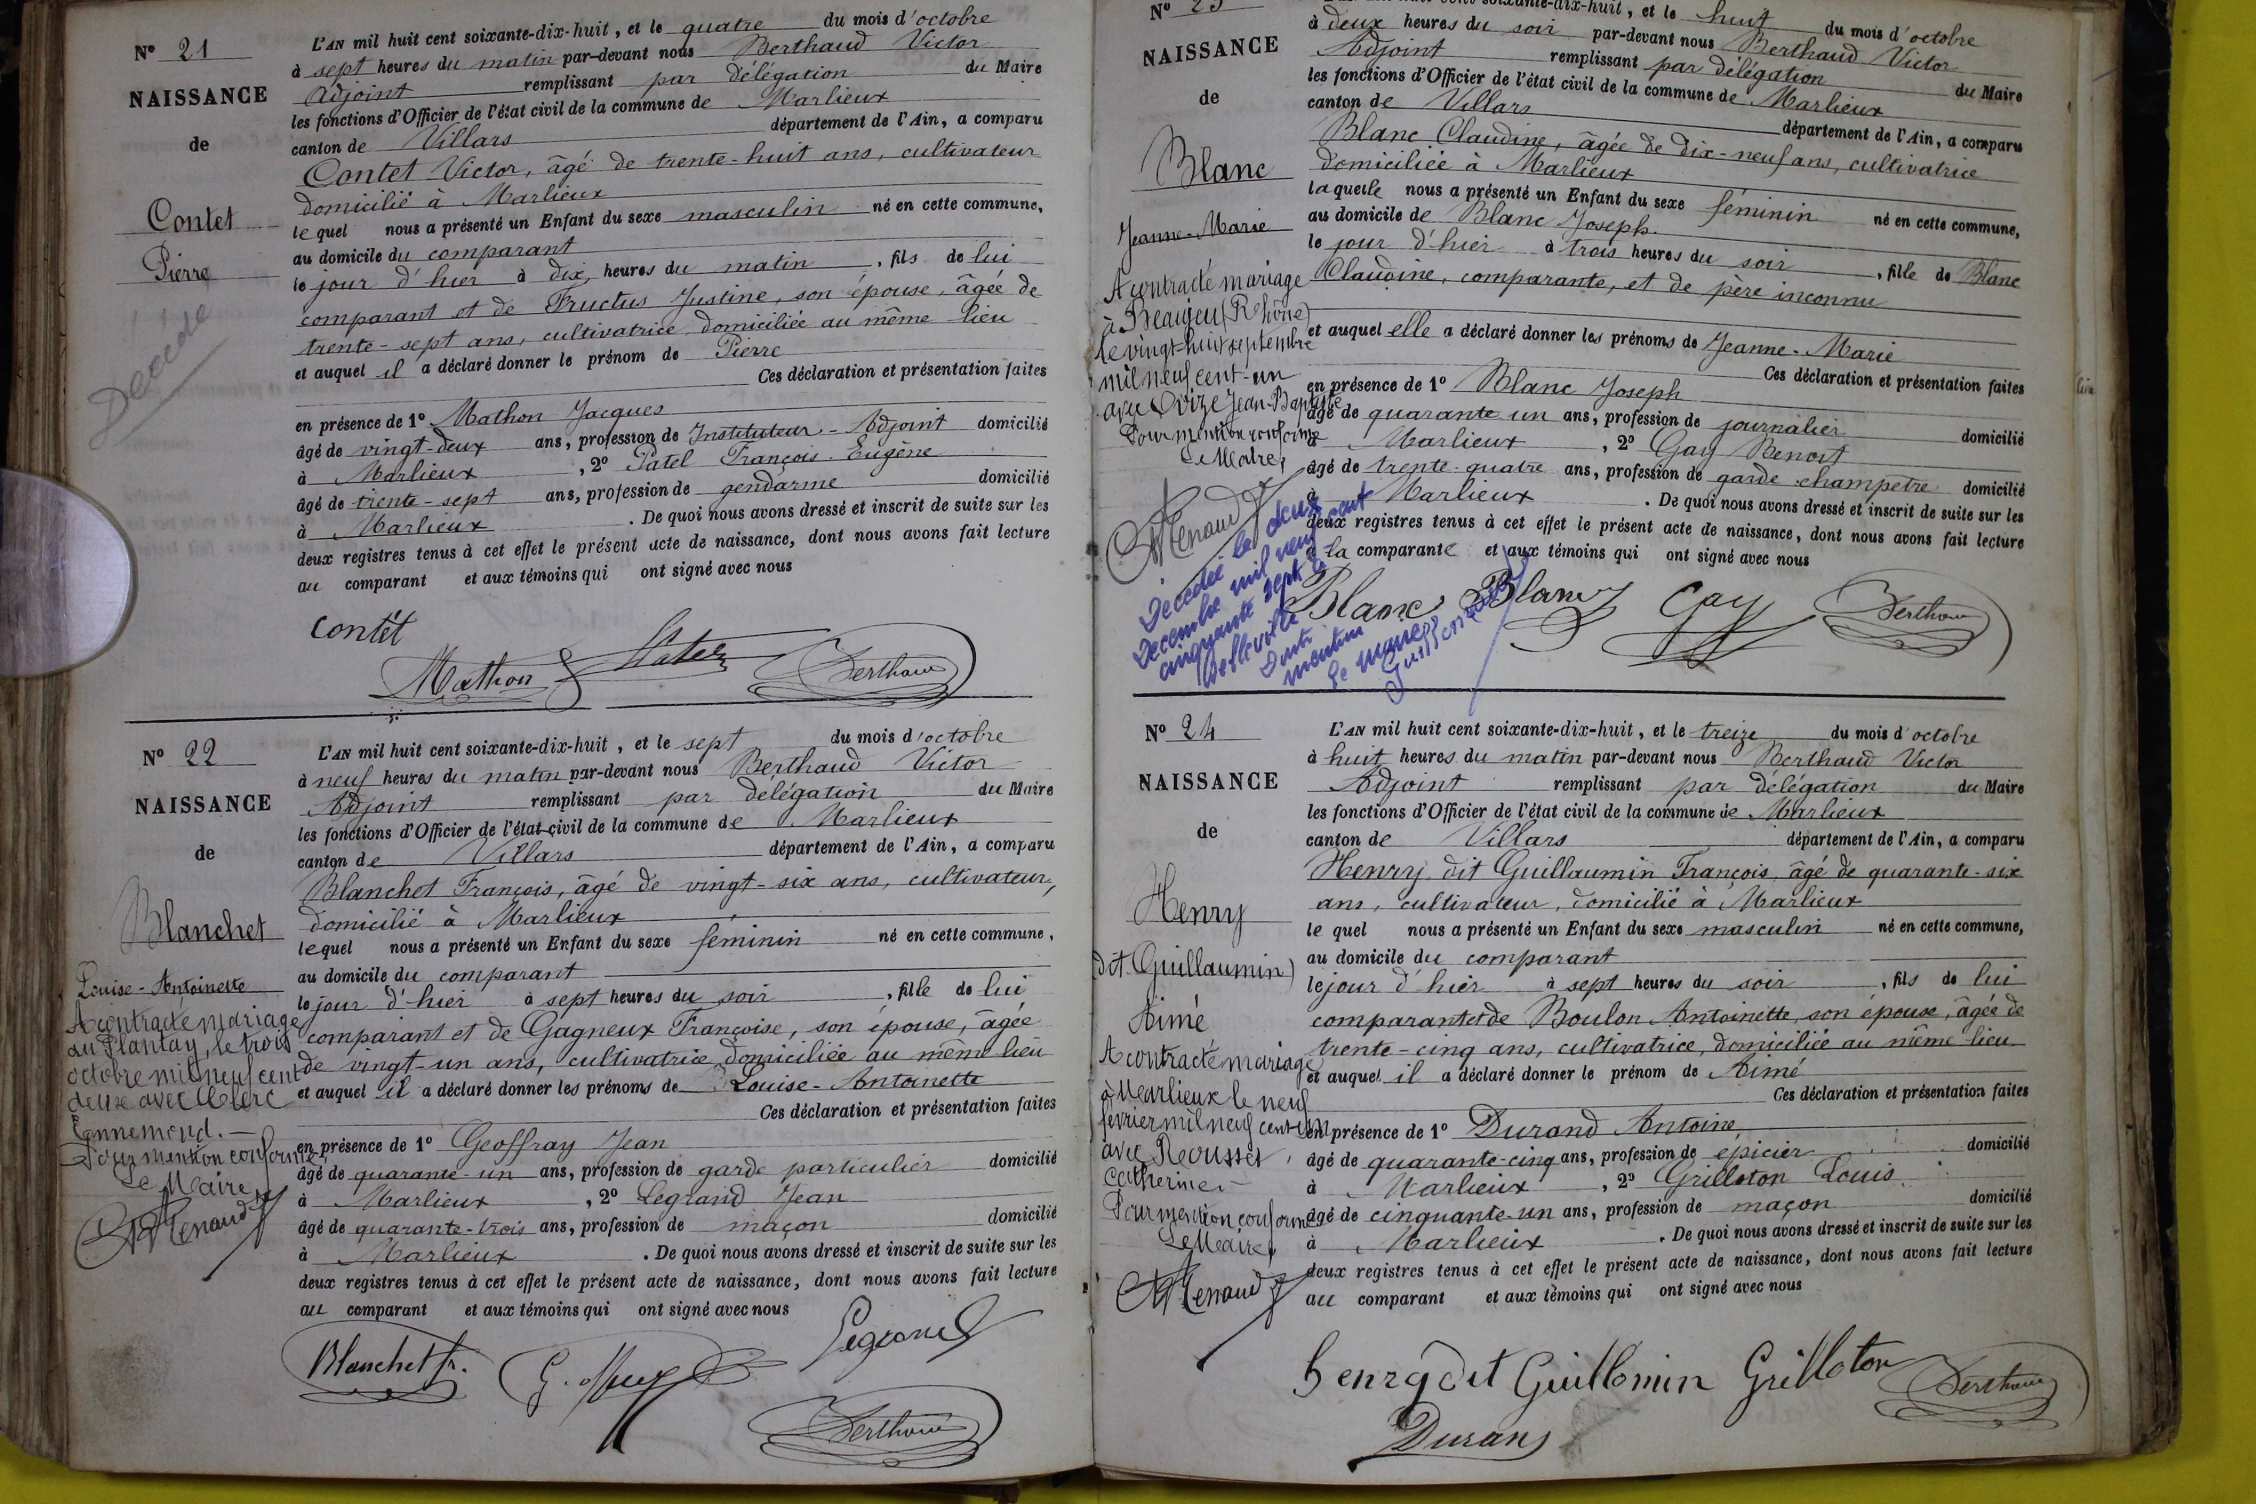 Nº 21
NAISSANCE
de
Contet
Pierre
Décédé
L'AN mil huit cent soixante-dix-huit, et le quatre du mois d'octobre
à sept heures du matin par-devant nous Berthaud Victor
Adjoint remplissant par délégation du Maire
les fonctions d'Officier de l'état civil de la commune de Marlieux
canton de Villars département de l'Ain, a comparu
Contet Victor, âgé de trente-huit ans, cultivateur
domicilié à Marlieux
lequel nous a présenté un Enfant du sexe masculin né en cette commune,
au domicile du comparant
le jour d'hier à dix heures du matin, fils de lui
comparant et de Fructus Justine, son épouse, âgée de
trente-sept ans, cultivatrice domiciliée au même lieu
et auquel il a déclaré donner le prénom de Pierre
Ces déclaration et présentation faites
en présence de 1º Mathon Jacques
âgé de vingt-deux ans, profession de Instituteur-Adjoint domicilié
à Marlieux, 2º Patel François-Eugène
âgé de trente-sept ans, profession de gendarme domicilié
à Marlieux. De quoi nous avons dressé et inscrit de suite sur les
deux registres tenus à cet effet le présent acte de naissance, dont nous avons fait lecture
au comparant et aux témoins qui ont signé avec nous
Contet
Mathon Patel Berthaud
Nº 22
NAISSANCE
de
Blanchet
Louise-Antoinette
A contracté mariage
au Plantay, le trois
octobre mil neuf cent
deux avec Clerc
Ennemond.
Pour mention conforme
Le Maire,
Renaud
L'AN mil huit cent soixante-dix-huit, et le sept du mois d'octobre
à neuf heures du matin par-devant nous Berthaud Victor
Adjoint remplissant par délégation du Maire
les fonctions d'Officier de l'état civil de la commune de Marlieux
canton de Villars département de l'Ain, a comparu
Blanchet François, âgé de vingt-six ans, cultivateur,
domicilié à Marlieux
lequel nous a présenté un Enfant du sexe féminin né en cette commune,
au domicile du comparant
le jour d'hier à sept heures du soir, fille de lui
comparant et de Gagneux Françoise, son épouse, âgée
de vingt-un ans, cultivatrice domiciliée au même lieu
et auquel il a déclaré donner les prénoms de Louise-Antoinette
Ces déclaration et présentation faites
en présence de 1º Geoffray Jean
âgé de quarante-un ans, profession de garde particulier domicilié
à Marlieux, 2º Legrand Jean
âgé de quarante-trois ans, profession de maçon domicilié
à Marlieux. De quoi nous avons dressé et inscrit de suite sur les
deux registres tenus à cet effet le présent acte de naissance, dont nous avons fait lecture
au comparant et aux témoins qui ont signé avec nous
Legrand
Blanchet fr.
Berthaud
Nº 23
NAISSANCE
de
Blanc
Jeanne-Marie
A contracté mariage
à Beaujeu (Rhône)
le vingt-huit septembre
mil neuf cent-un
avec Jean-Baptiste
Pour mention conforme
Le Maire,
Renaud
Décédée le deux
Décembre mil neuf cent
cinquante sept à
Belleville
Dont
mention
Le Maire
soixante-dix-huit, et le huit du mois d'octobre
à deux heures du soir par-devant nous Berthaud Victor
Adjoint remplissant par délégation du Maire
les fonctions d'Officier de l'état civil de la commune de Marlieux
canton de Villars département de l'Ain, a comparu
Blanc Claudine, âgée de dix-neuf ans, cultivatrice
domiciliée à Marlieux
laquelle nous a présenté un Enfant du sexe féminin né en cette commune,
au domicile de Blanc Joseph
le jour d'hier à trois heures du soir, fille de Blanc
Claudine, comparante, et de père inconnu
et auquel elle a déclaré donner les prénoms de Jeanne-Marie
Ces déclaration et présentation faites
en présence de 1º Blanc Joseph
âgé de quarante un ans, profession de journalier domicilié
à Marlieux, 2º Gay Benoit
âgé de trente-quatre ans, profession de garde champêtre domicilié
à Marlieux. De quoi nous avons dressé et inscrit de suite sur les
deux registres tenus à cet effet le présent acte de naissance, dont nous avons fait lecture
à la comparante et aux témoins qui ont signé avec nous
Blanc Blanc Gay Berthaud
Nº 24
NAISSANCE
de
Henry
(dit Guillaumin)
Aimé
A contracté mariage
à Marlieux le neuf
février mil neuf cent un
avec Rousset
Catherine
Pour mention conforme
Le Maire,
Renaud
L'AN mil huit cent soixante-dix-huit, et le treize du mois d'octobre
à huit heures du matin par-devant nous Berthaud Victor
Adjoint remplissant par délégation du Maire
les fonctions d'Officier de l'état civil de la commune de Marlieux
canton de Villars département de l'Ain, a comparu
Henry dit Guillaumin François, âgé de quarante-six
ans, cultivateur, domicilié à Marlieux
lequel nous a présenté un Enfant du sexe masculin né en cette commune,
au domicile du comparant
le jour d'hier à sept heures du soir, fils de lui
comparant et de Boulon Antoinette, son épouse, âgée de
trente-cinq ans, cultivatrice, domiciliée au même lieu
et auquel il a déclaré donner le prénom de Aimé
Ces déclaration et présentation faites
en présence de 1º Durand Antoine
âgé de quarante-cinq ans, profession de épicier domicilié
à Marlieux, 2º Grilloton Louis
âgé de cinquante-un ans, profession de maçon domicilié
à Marlieux. De quoi nous avons dressé et inscrit de suite sur les
deux registres tenus à cet effet le présent acte de naissance, dont nous avons fait lecture
au comparant et aux témoins qui ont signé avec nous
henry dit Guillomin Grilloton Berthaud
Durand